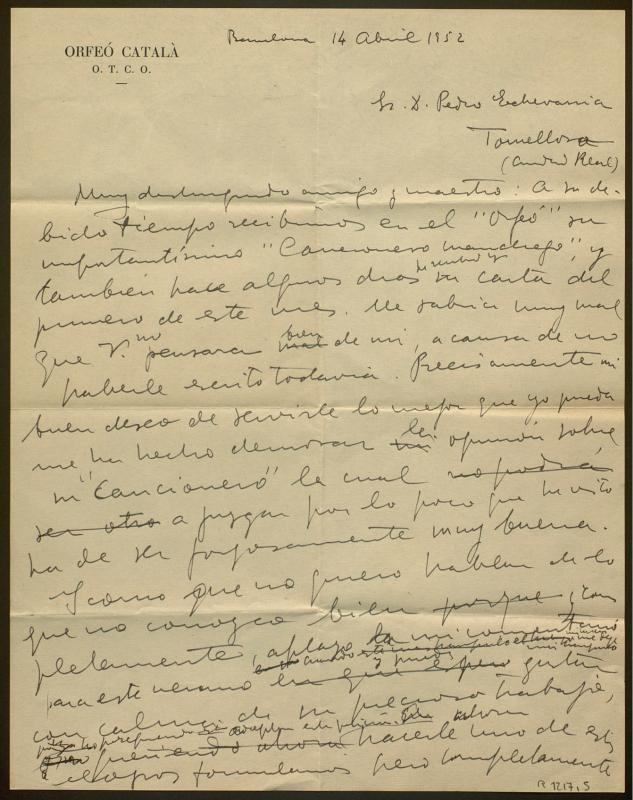 ORFEÓ CATALÀ
O. T. C. O.
Barcelona 14 Abril 1952
Sr. D. Pedro Echevarria
Tomellosa
(Ciudad Real)
Muy distinguido amigo y maestro: A su de-
bido tiempo recibimos en el "Orfeó" su
importantísimo "Cancionero manchego", y
también hace algunos dias su carta del
primero de este mes. Me sabria muy mal
que V. no pensara bien de mi, a causa de no
haberle escrito todavia. Precisamente mi
buen deseo de servirle lo mejor que yo pueda
me ha hecho demorar la opinión sobre
su "Cancionero" la cual no podrá
ser otra a juzgar por lo poco que he visto
ha de ser forzosamente muy buena.
Y como que no quiero hablar de lo
que no conozco bien porque com
pletamente, aplazo mi comentario
para este verano la que espero gustar
con calma de su precioso trabajo,
prefiriendo ahora hacerle uno de esos
elogios formularios pero completamente
R 1217,5